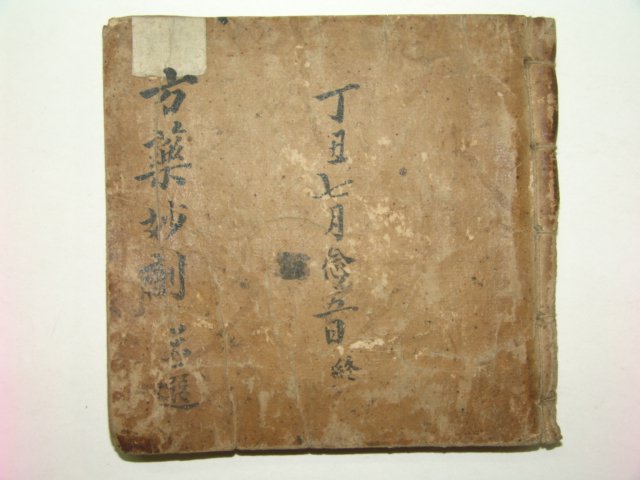 丁丑七月念五日終
方藥妙劑選